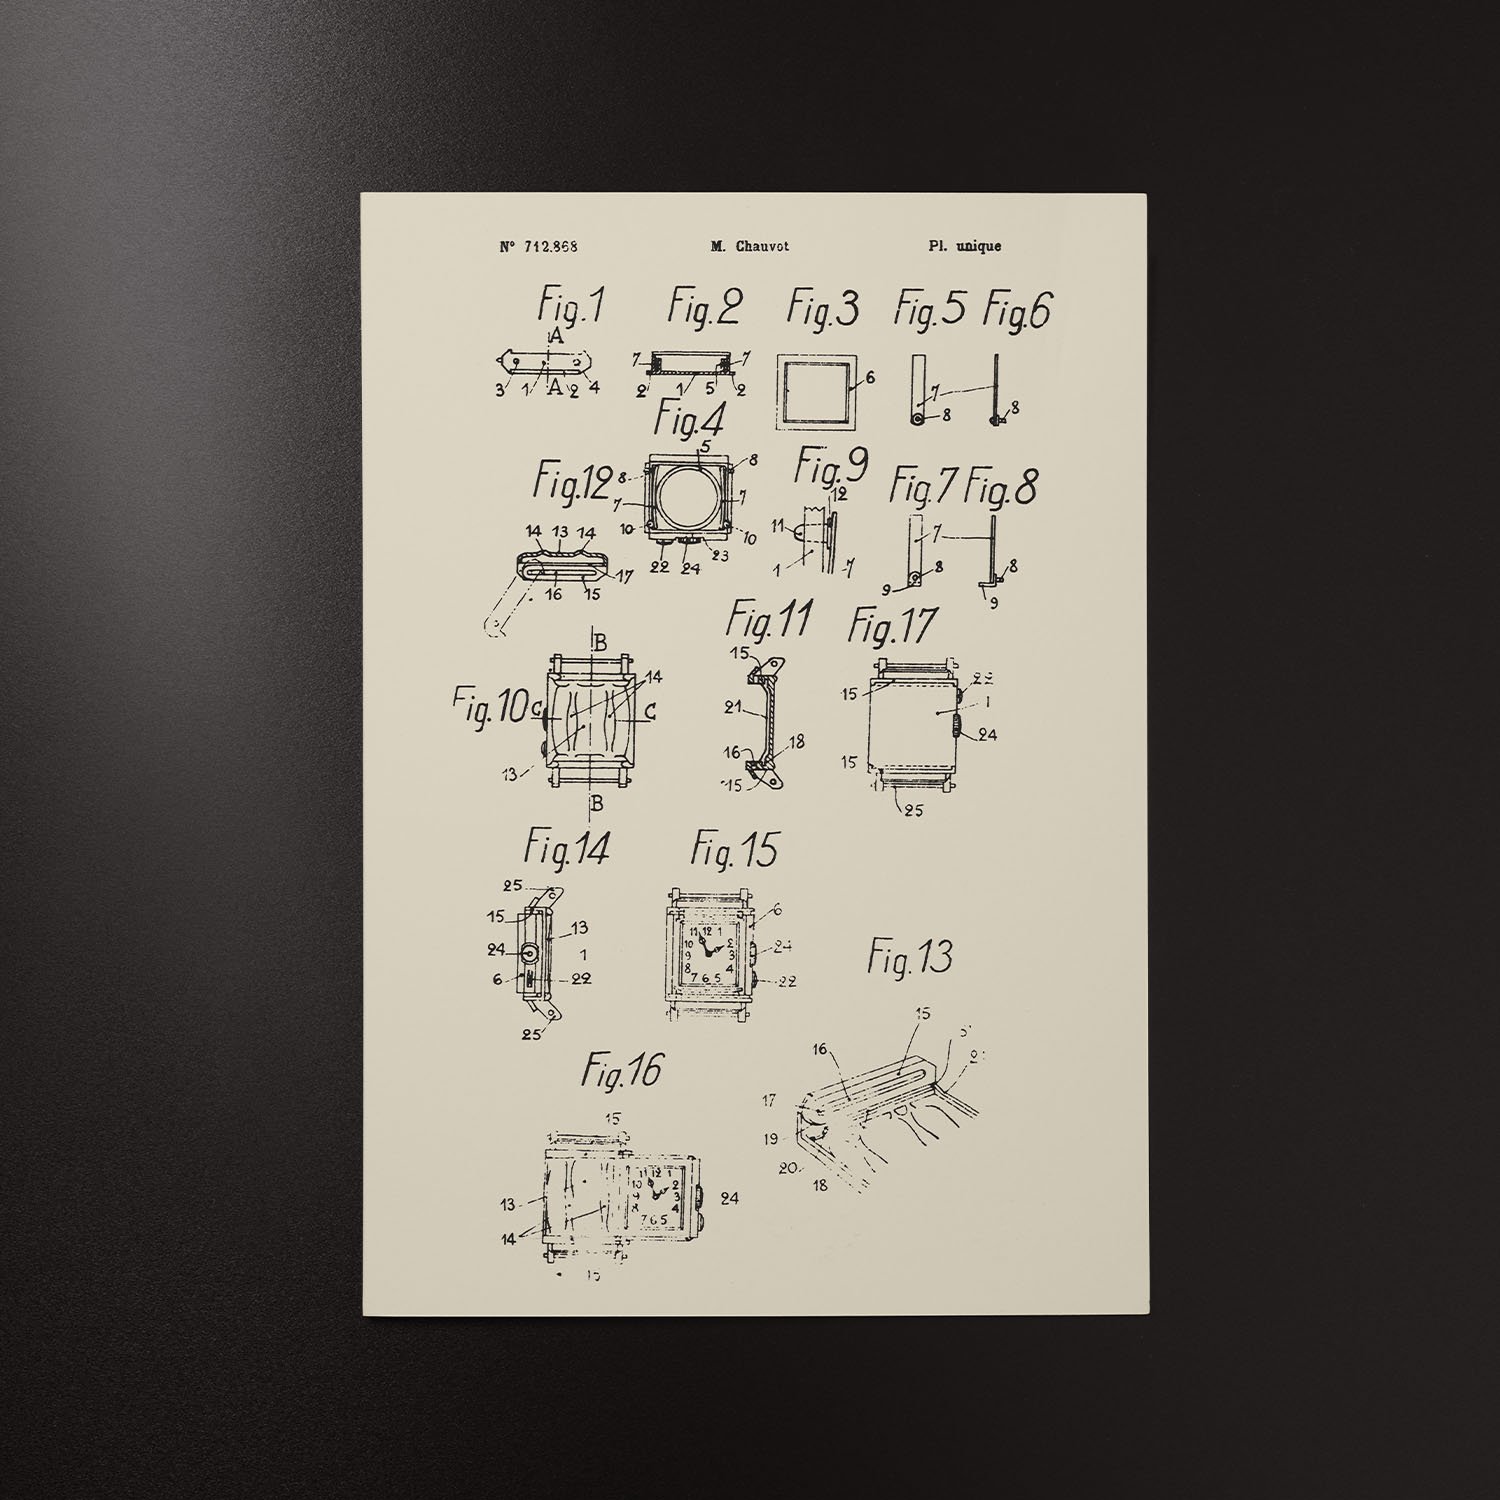 Nº 712.868 M. Chauvot Pl. unique
Fig.1 Fig.2 Fig.3 Fig.5 Fig.6
A
7 7 6 7 8 8
3 1 A 2 4 2 1 5 2
Fig.4
5
Fig.12 8 8 Fig.9 Fig.7 Fig.8
7 7 12
10 10 11 7
14 13 14 22 24 23 1 7 8 8
17 9 9
16 15
Fig.11 Fig.17
B 15 22
14 15 1
Fig.10 C C 21 24
16 18
13 15 15
B 25
Fig.14 Fig.15
25 6
15 13 11 12 1
24 1 10 2 24
9 3
6 22 8 4 22
7 6 5
25
Fig.13
15
16
Fig.16
17
15 19
11 12 1 20
10 2 18
13 9 3 24
8 4
14 7 6 5